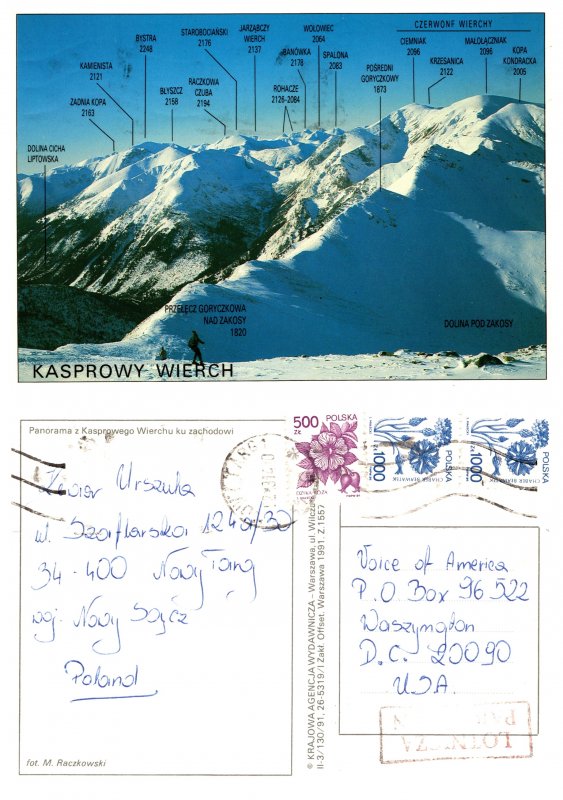 CZERWONE WIERCHY
WOŁOWIEC
2064
STAROBOCIAŃSKI
2176
JARZĄBCZY
WIERCH
2137
BYSTRA
2248
CIEMNIAK
2096
MAŁOŁĄCZNIAK
2096
BANÓWKA
2178
SPALONA
2083
KOPA
KONDRACKA
2005
KRZESANICA
2122
KAMIENISTA
2121
POŚREDNI
GORYCZKOWY
1873
RACZKOWA
CZUBA
2194
ROHACZE
2126-2084
BŁYSZCZ
2158
ZADNIA KOPA
2163
DOLINA CICHA
LIPTOWSKA
PRZEŁĘCZ GORYCZKOWA
NAD ZAKOSY
1820
DOLINA POD ZAKOSY
KASPROWY WIERCH
Panorama z Kasprowego Wierchu ku zachodowi
500
ZŁ
POLSKA
1000
ZŁ
CHABER BŁAWATEK
POLSKA
1000
ZŁ
CHABER BŁAWATEK
POLSKA
Urszula
ul. Szaflarska 124
34-400 Nowy Targ
woj. Nowy Sącz
Poland
fot. M. Raczkowski
© KRAJOWA AGENCJA WYDAWNICZA - Warszawa, ul. Wilcza
II-3/130/91, 26-5319/I Zakł. Offset. Warszawa 1991, Z.1557
Voice of America
P.O Box 96522
Waszyngton
D.C. 20090
USA.
LOTNICZA
PAR